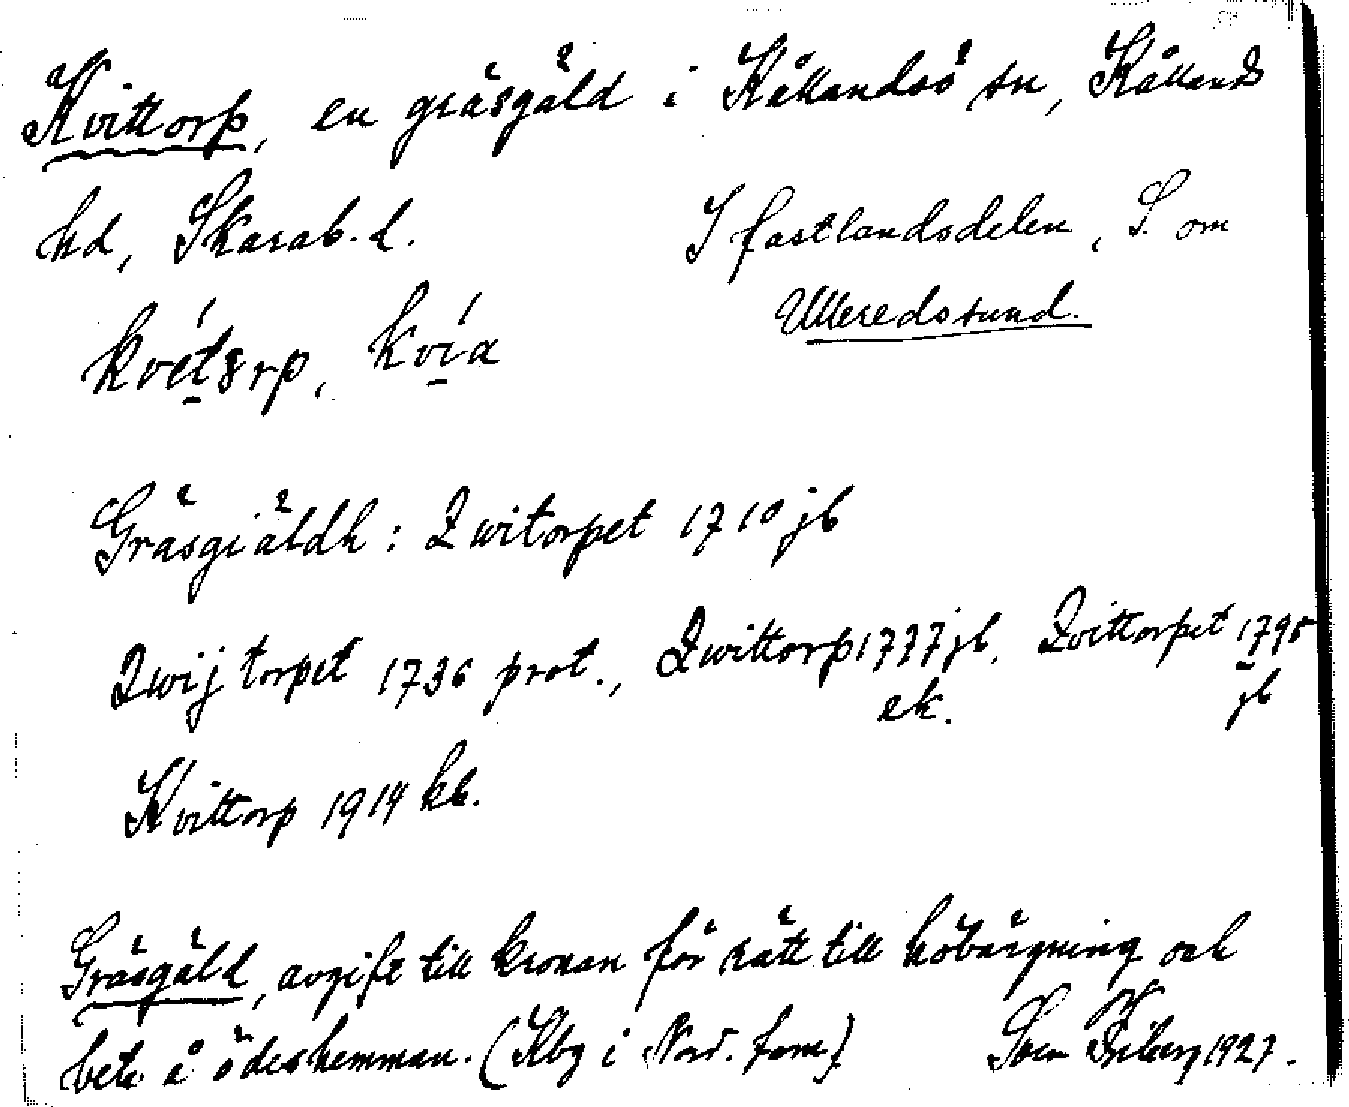 Kvittorp, en gräsgäld i Kållandsö sn, Kållands
hd, Skarab. l. I fastlandsdelen, S. om
Ulleredssund.
kvít8rp, kvía
Gräsgiäldh: Qwitorpet 1710 jb
Qwijtorpet 1736 prot., Qwittorp 1777 jb, Qvittorpet 1795
ek. jb
Kvittorp 1914 kb.
Gräsgäld, avgift till kronan för rätt till höbärgning och
bete å ödeshemman. (Kbg i Nord. fam.) Sven Friberg 1927.